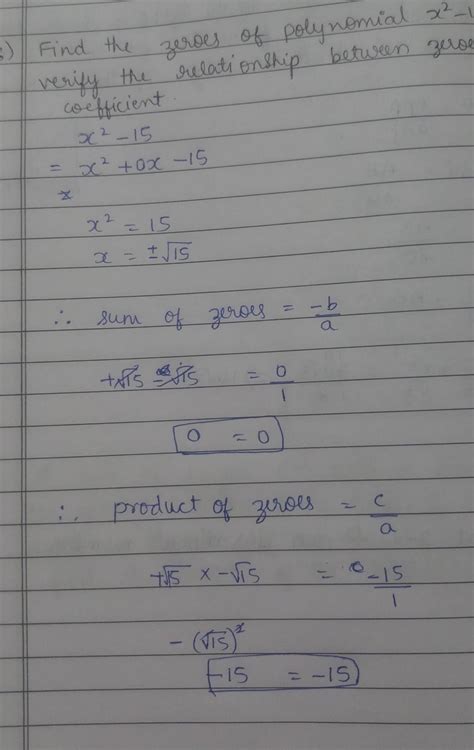 Find the zeroes of polynomial x² - 1
verify the relationship between zeroe
coefficient.
x² - 15
= x² + 0x - 15
x² = 15
x = ±√15
∴ sum of zeroes = -b/a
+√15 - √15 = 0/1
0 = 0
∴ product of zeroes = c/a
+√15 × -√15 = -15/1
- (√15)²
-15 = -15